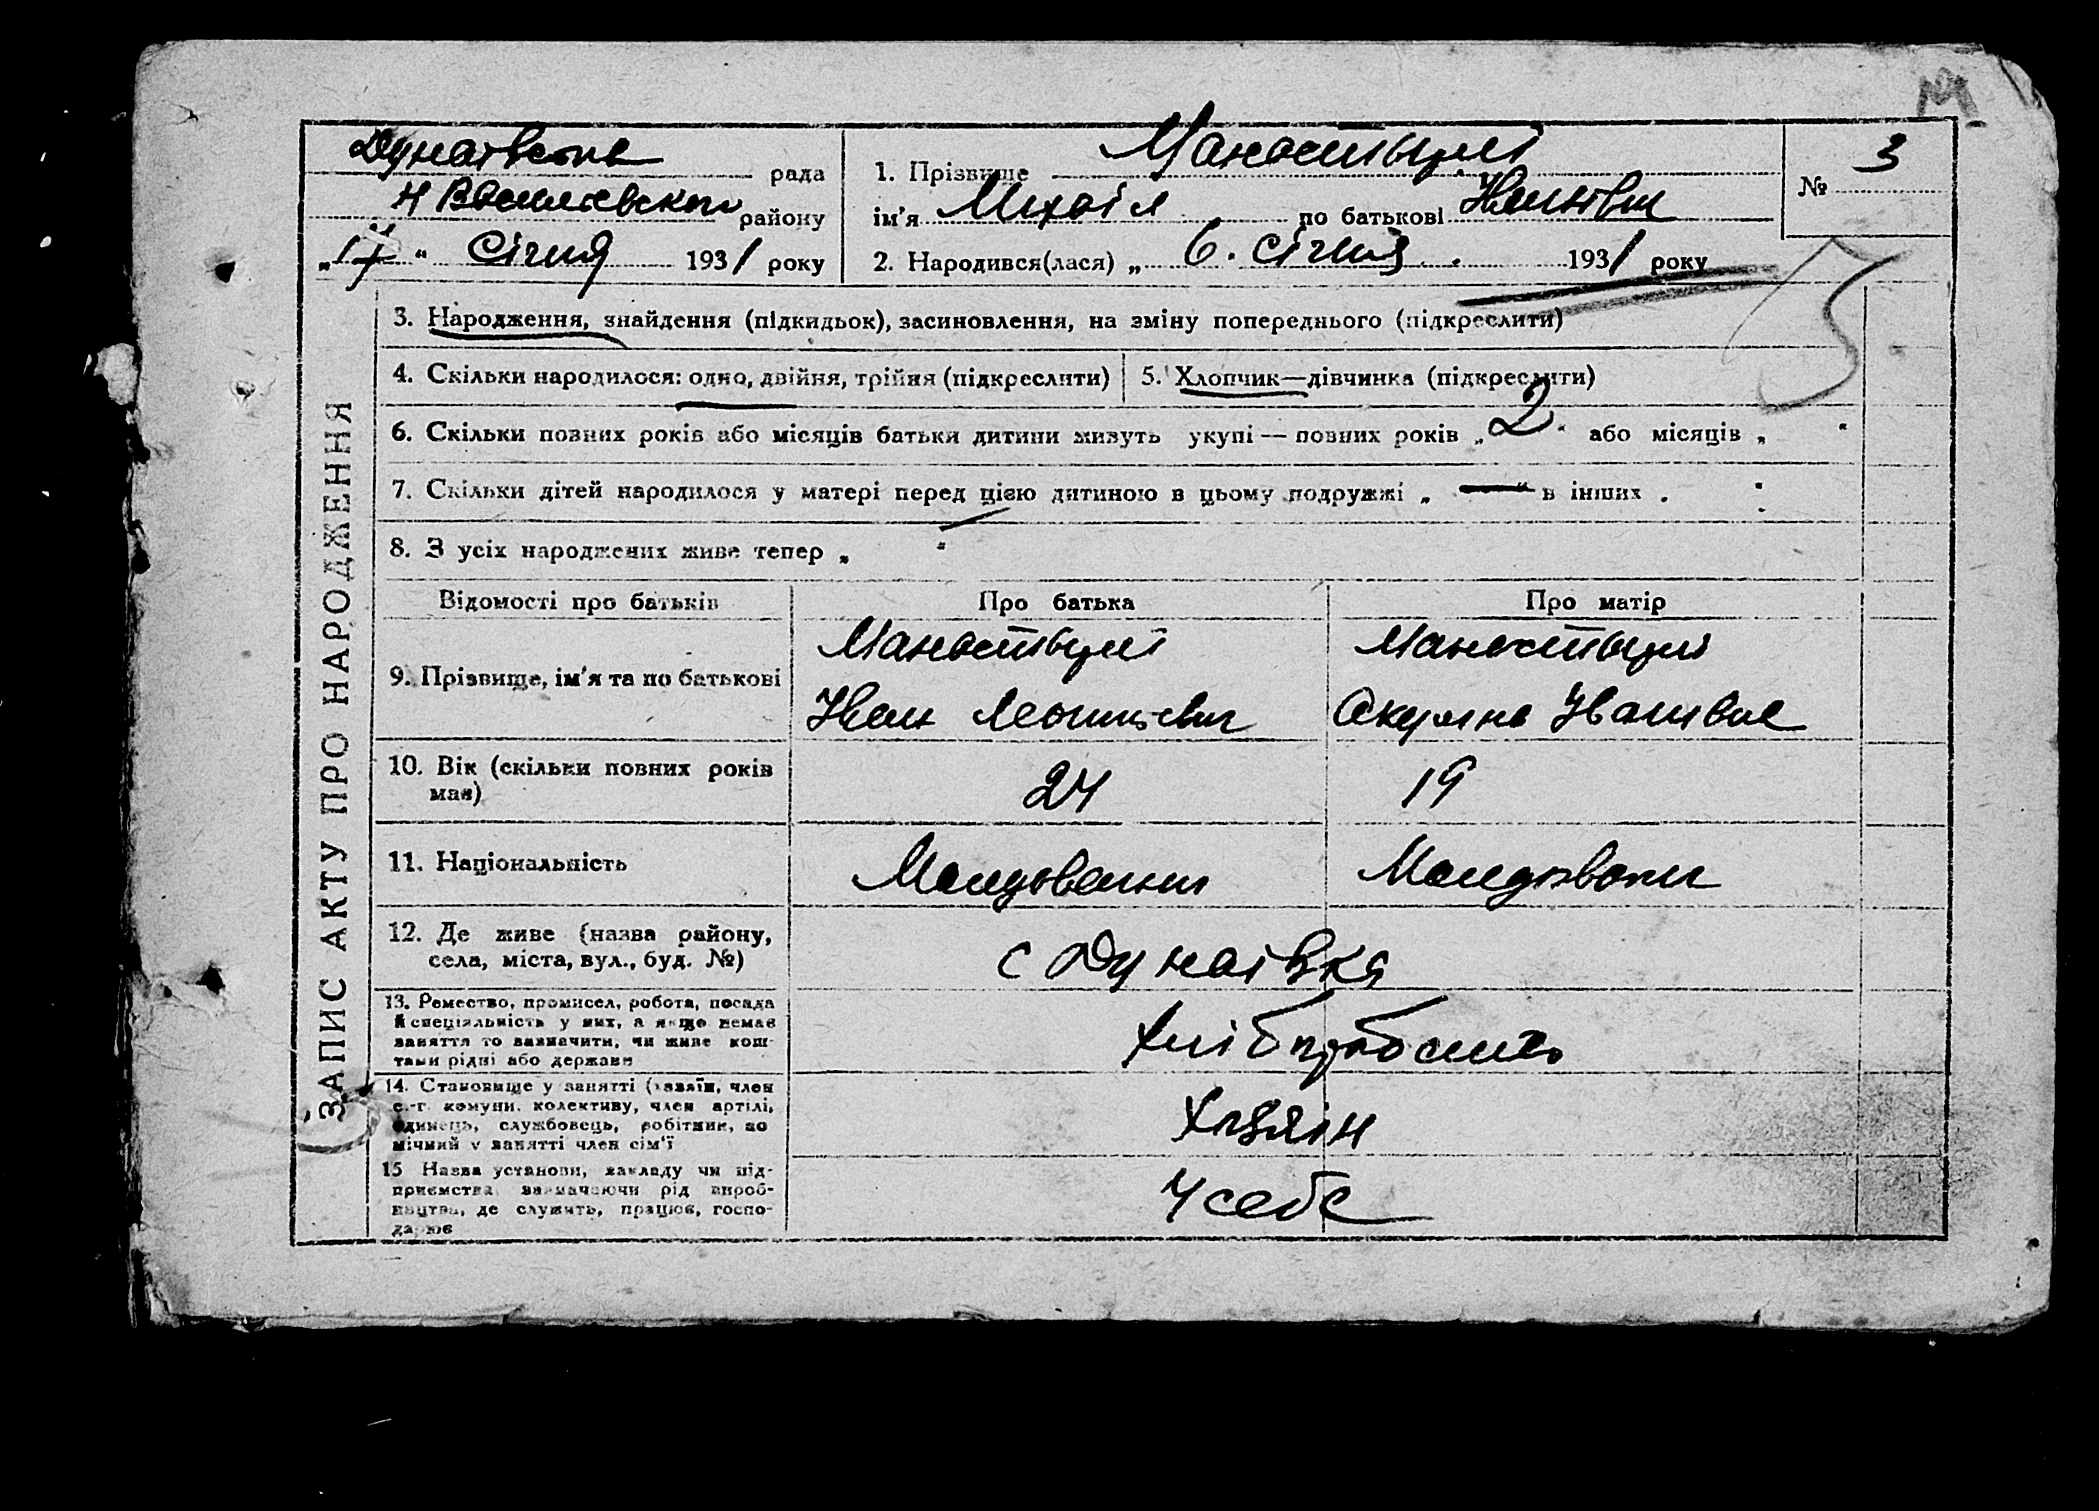 М
Дунаївська рада
Н Василівського району
„17“ Січня 1931 року
1. Прізвище Манастирлі
ім'я Міхаіл по батькові Іванович
2. Народився(лася) „ 6. Січня 1931 року
№ 3
3. Народження, знайдення (підкидьок), засиновлення, на зміну попереднього (підкреслити)
4. Скільки народилося: одно, двійня, трійня (підкреслити)
5. Хлопчик—дівчинка (підкреслити)
6. Скільки повних років або місяців батьки дитини живуть укупі — повних років „2“ або місяців „ “
7. Скільки дітей народилося у матері перед цією дитиною в цьому подружжі „ — “ в інших „ “
8. З усіх народжених живе тепер „ — “
ЗАПИС АКТУ ПРО НАРОДЖЕННЯ
Відомості про батьків
Про батька
Про матір
9. Прізвище, ім'я та по батькові
Манастирлі
Іван
Манастирлі
Акулина Іванівна
10. Вік (скільки повних років має)
24
19
11. Національність
Молдованин
Молдованка
12. Де живе (назва району,
села, міста, вул., буд. №)
с Дунаївка
13. Ремество, промисел, робота, посада
й спеціяльність у них, а якщо немає
заняття то зазначити, чи живе кош-
тами рідні або держави
Хліборобство
14. Становище у занятті (хазяїн, член
с.-г. комуни, колективу, член артілі,
одинець, службовець, робітник, по
мічний у занятті член сім'ї
Хазяін
15 Назва установи, закладу чи під-
приємства зазначаючи рід вироб-
ництва, де служить, працює, госпо-
дарює
У себе